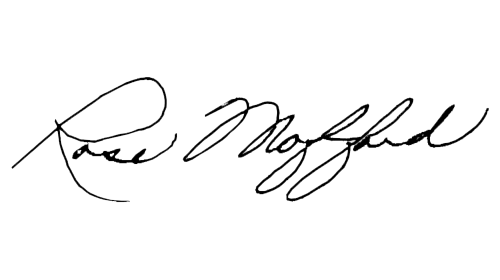 Rose Mofford